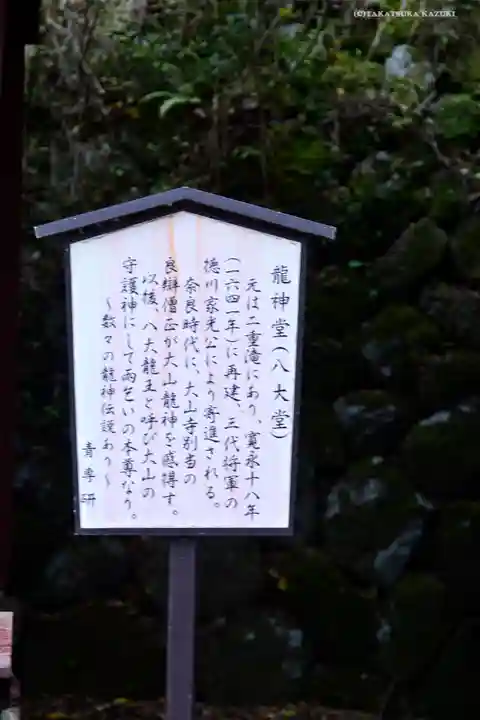 (C)TAKATSUKA KAZUKI
龍神堂(八大堂)
元は二重滝にあり、寛永十八年
(一六四一年)に再建、三代将軍の
徳川家光公により寄進される。
奈良時代に、大山寺別当の
良辯僧正が大山龍神を感得す。
以後、八大龍王と呼び大山の
守護神にして雨乞いの本尊なり。
〜数々の龍神伝説あり〜
青専研